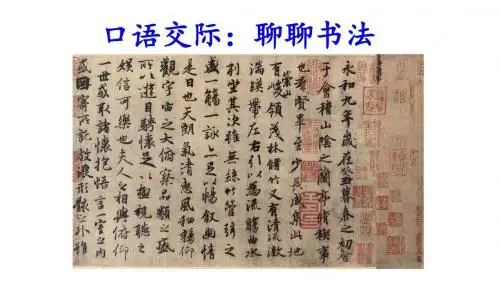 口语交际：聊聊书法
永和九年歲在癸丑暮春之初會
于會稽山陰之蘭亭脩稧事
也羣賢畢至少長咸集此地
崇山
有峻領茂林脩竹又有清流激
湍暎帶左右引以為流觴曲水
列坐其次雖無絲竹管弦之
盛一觴一詠亦足以暢敘幽情
是日也天朗氣清惠風和暢仰
觀宇宙之大俯察品類之盛
所以遊目騁懷足以極視聽之
娛信可樂也夫人之相與俯仰
一世或取諸懷抱悟言一室之內
或因寄所託放浪形骸之外雖